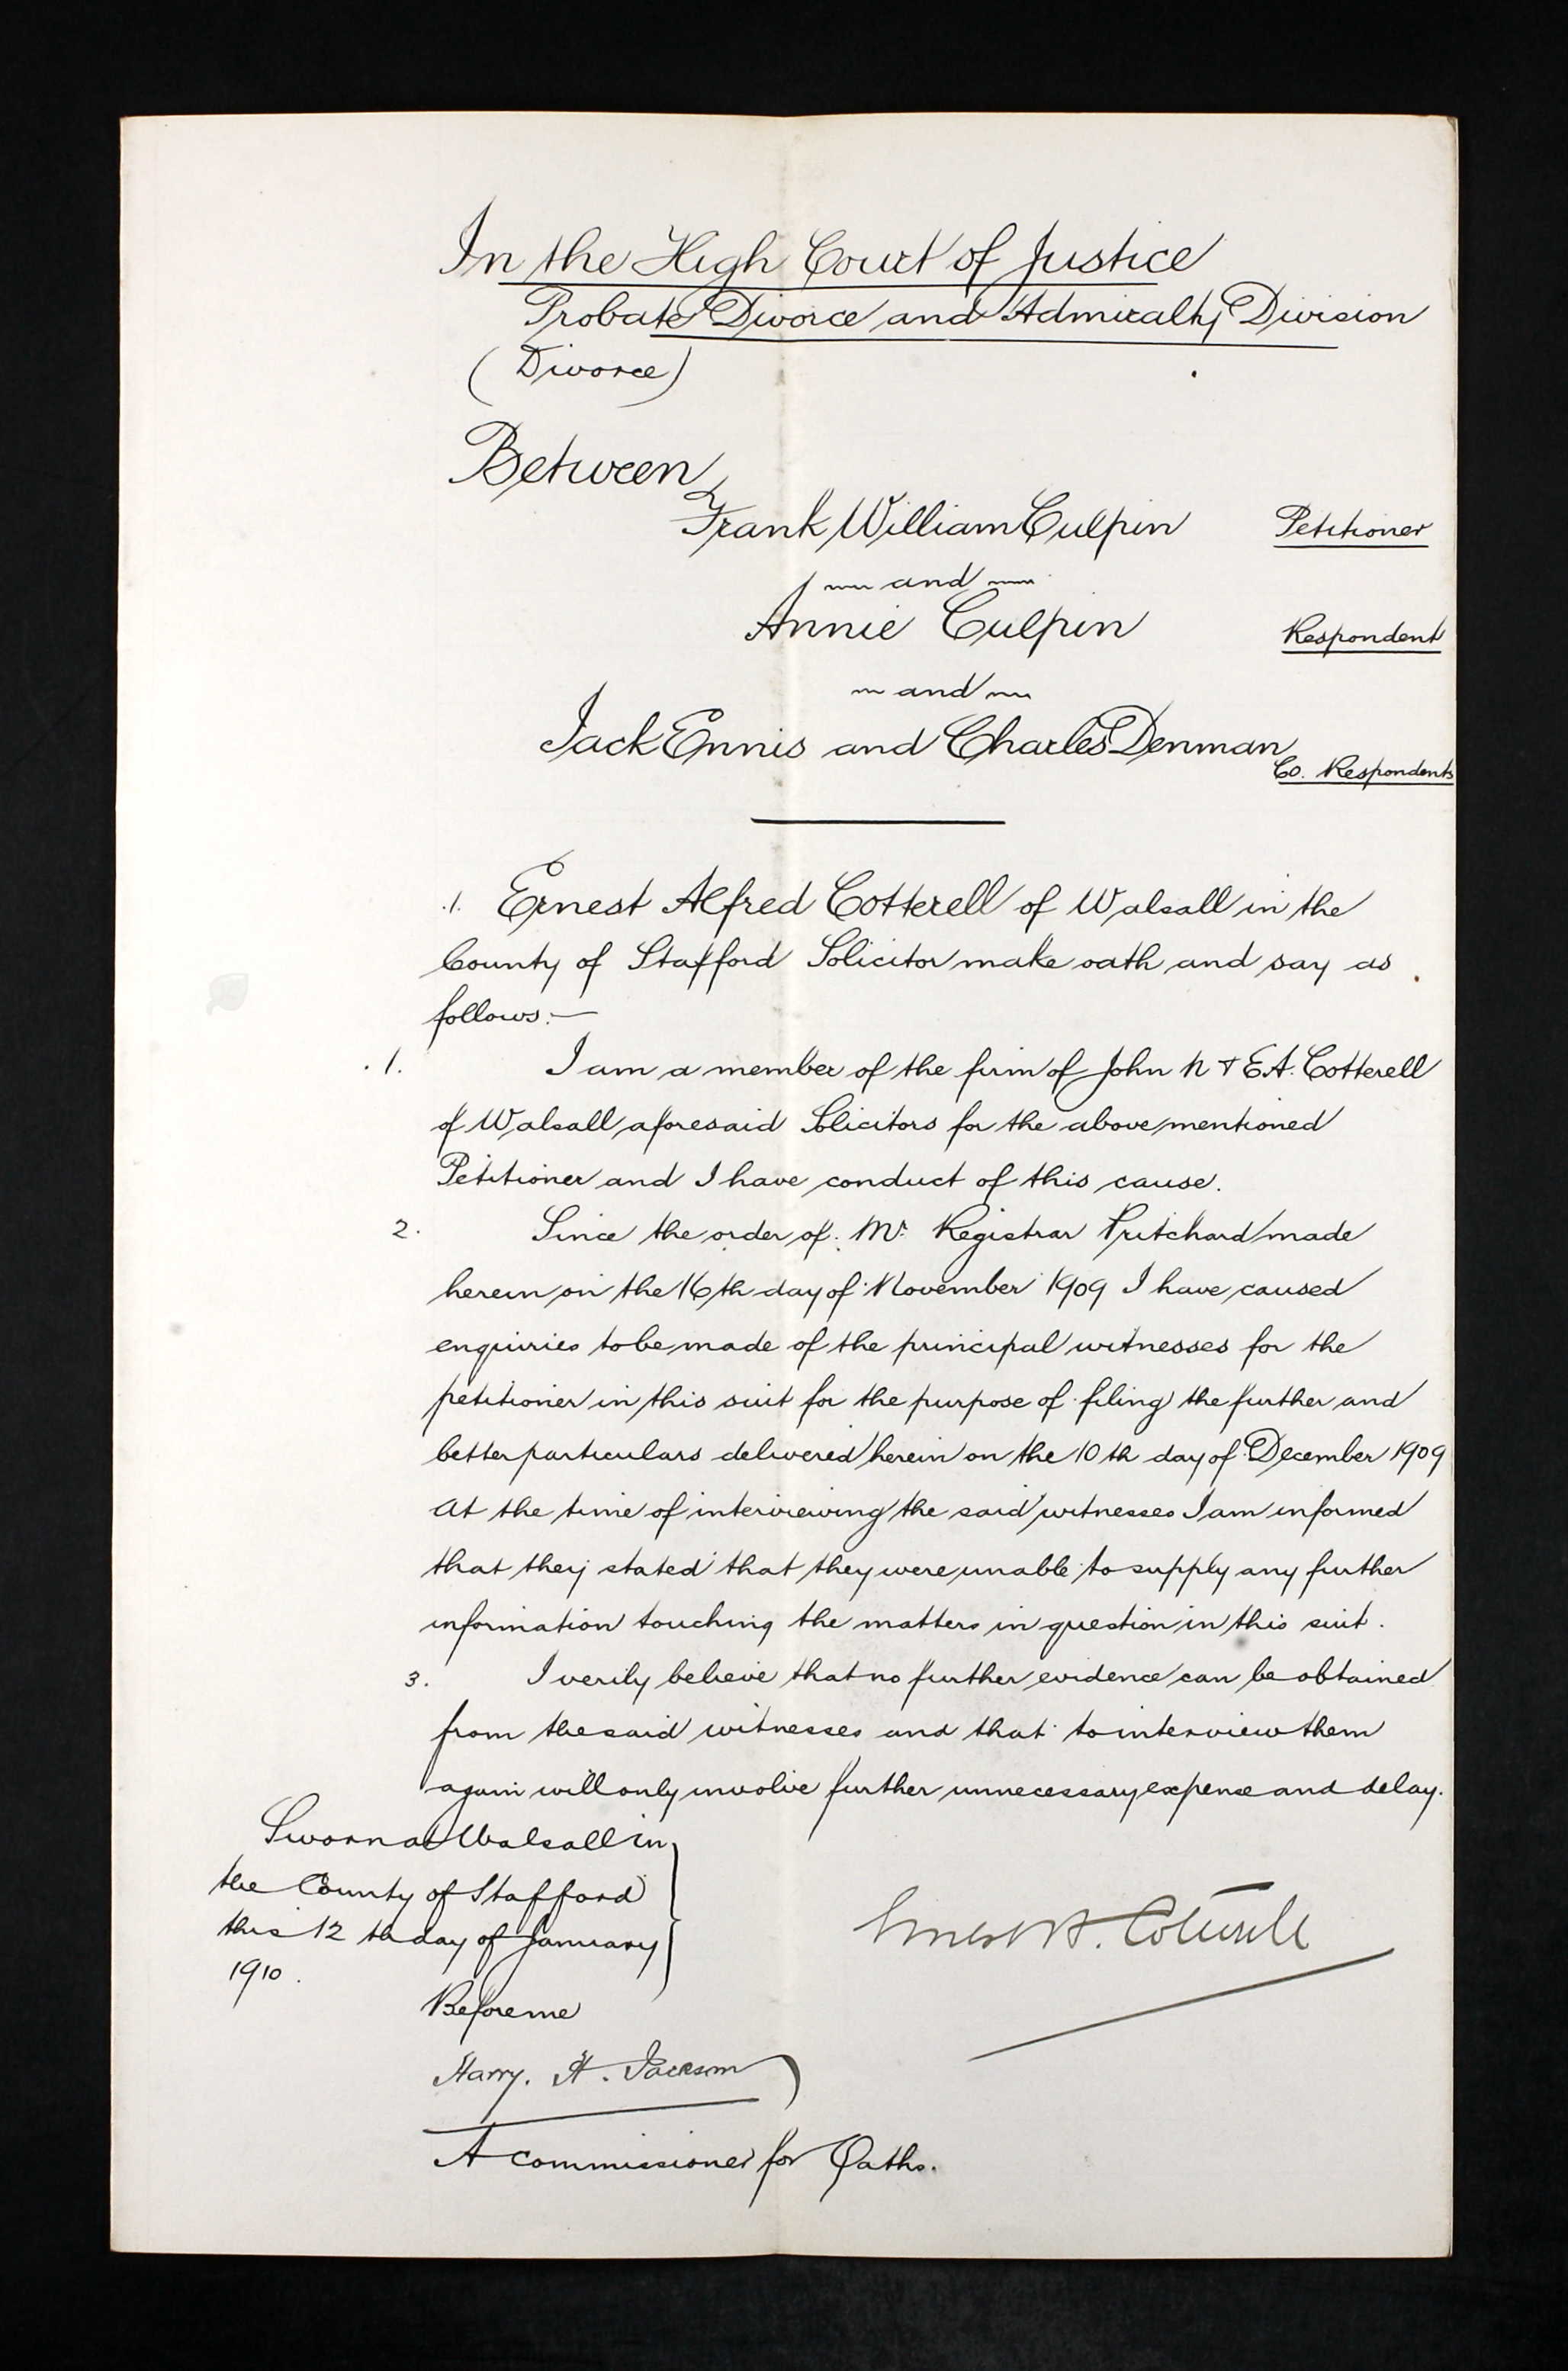 In the High Court of Justice
Probate Divorce and Admiralty Division
(Divorce)
Between
Frank William Culpin Petitioner
and
Annie Culpin Respondent
and
Jack Ennis and Charles Denman
Co. Respondents
.1. Ernest Alfred Cotterell of Walsall in the
County of Stafford Solicitor make oath and say as
follows:—
.1. I am a member of the firm of John N & E.A. Cotterell
of Walsall aforesaid Solicitors for the above mentioned
Petitioner and I have conduct of this cause.
2. Since the order of Mr. Registrar Pritchard made
herein on the 16th day of November 1909 I have caused
enquiries to be made of the principal witnesses for the
petitioner in this suit for the purpose of filing the further and
better particulars delivered herein on the 10th day of December 1909
At the time of interviewing the said witnesses I am informed
that they stated that they were unable to supply any further
information touching the matters in question in this suit.
3. I verily believe that no further evidence can be obtained
from the said witnesses and that to interview them
again will only involve further unnecessary expense and delay.
Sworn at Walsall in
the County of Stafford
this 12th day of January
1910.
Ernest A. Cotterell
Before me
Harry. H. Jackson
A Commissioner for Oaths.